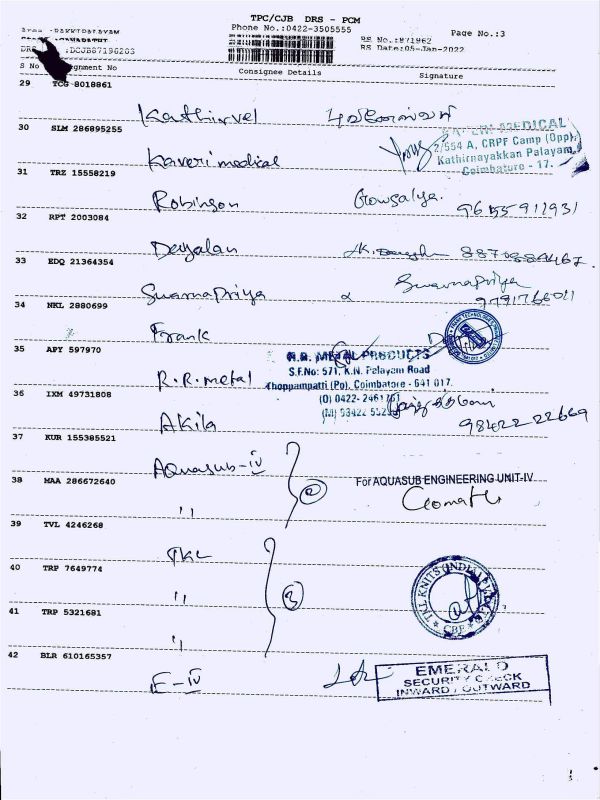 TPC/CJB DRS - PCM
Phone No.:0422-3505555
Page No.:3
RS No.:871962
DRS :DCJB87196203
RS Date:05-Jan-2022
S No signment No Consignee Details Signature
29 TCG 8018861
Kathirvel
30 SLM 286895255
Kaveri medical
MEDICAL
2/554 A, CRPF Camp (Opp)
Kathirnayakkan Palayam,
Coimbatore - 17.
31 TRZ 15558219
Robinson Gowsalya. 9655911931
32 RPT 2003084
Dayalan
33 EDQ 21364354
Swarnapriya Swarnapriya
9791766011
34 NKL 2880699
Frank
35 APY 597970
R.R.metal
METAL PRODUCTS
S.F.No: 571, K.N. Palayam Road
Thoppampatti (Po). Coimbatore - 641 017.
(O) 0422- 2461761
36 IXM 49731808
Akila 98422 22669
37 KUR 155385521
Aquasub-IV
38 MAA 286672640
" 2
For AQUASUB ENGINEERING UNIT-IV
Gomathi
39 TVL 4246268
TKL
40 TRP 7649774
" 3
TKL KNITS (INDIA)
CBE
41 TRP 5321681
"
42 BLR 610165357
E-IV
EMERALD
SECURITY CHECK
INWARD / OUTWARD